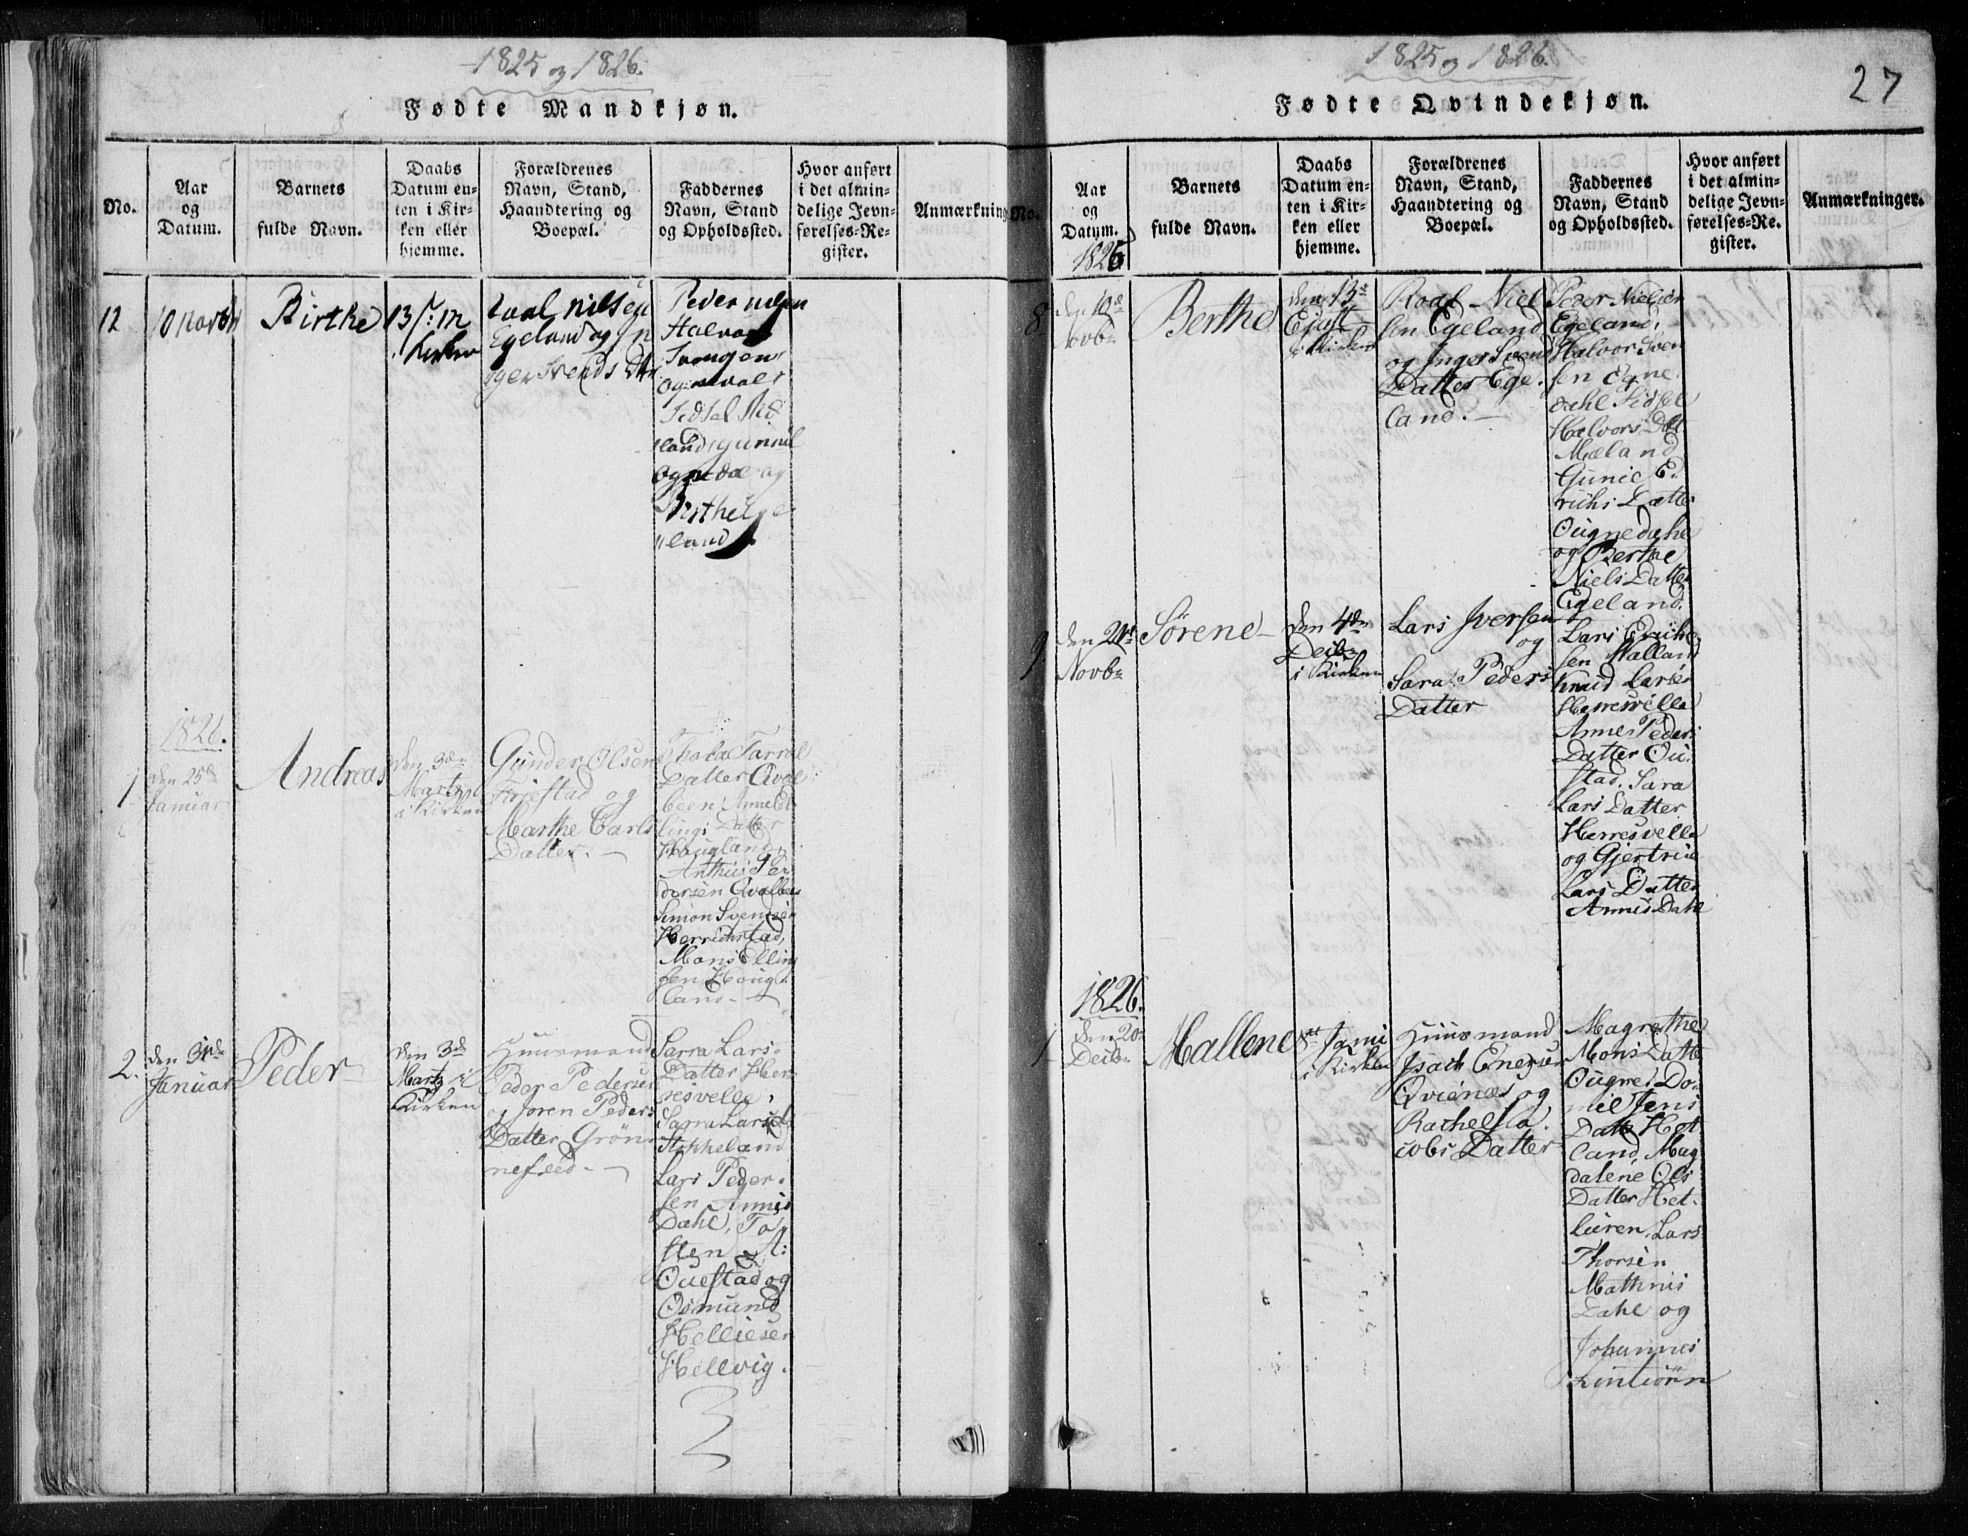 1825 og 1826.
Fødte Mandkjøn.
No.
Aar
og
Datum.
Barnets
fulde Navn.
Daabs
Datum en-
ten i Kir-
ken eller
hjemme.
Forældrenes
Navn, Stand,
Haandtering og
Boepæl.
Faddernes
Navn, Stand
og Opholdssted.
Hvor anført
i det almin-
delige Jevn-
førelses-Re-
gister.
Anmærkning
12
10 Novbr
Birthe
13
Kirken
Nilsen
Egeland og In
ger Svends Dtr
Peder
Halvor
Svensen
Sidsel Me
land, Gunnil
og
Birthe
land
1826.
1
den 25de
Januar
Andreas
den 3de
Martz
i Kirken
Gunder Olsen
Fiestad og
Marthe Carls
Datter. —
Datter Qval
been
lings Datter
Hougland,
Pe
dersen Qvalbeen
Simon Svendsen
Herrichstad,
Mons Elling
sen Houg
land. —
2.
den 31de
Januar
Peder
den 3de
Martz i
Kirken
Huusmand
Peder Pedersen
og Joren Peders
Datter Grøn
neslid. —
Sarra Lars
Datter Her
resvelle,
Sarra Lars D.
Stekkeland
Lars Peder
sen Annis
Dahl, To
sten A:
Ouestad og
Osmund
Helliesen
Hellvig.
1825 og 1826.
27
Fødte Qvindekjøn.
No.
Aar
og
Datum.
1825
Barnets
fulde Navn.
Daabs
Datum en-
ten i Kir-
ken eller
hjemme.
Forældrenes
Navn, Stand,
Haandtering og
Boepæl.
Faddernes
Navn, Stand,
og Opholdssted.
Hvor anført
i det almin-
delige Jevn-
førelses-Re-
gister.
Anmærkninger.
8
den 10de
Novbr
Berthe
den 13de
i Kirken
Roal Niel
sen Egeland
og Inger Svends
Datter Ege
land. —
Peder Nielsen
Egeland,
Halvor Sven
sen Ogne
dahl Sidsel
Halvors Dat
Mæland
Gunil E
richs Datter
Ougnedahl
og Berthe
Niels Datter
Egeland.
9
den 21de
Novbr
Sørene
den 4de
Decbr
i Kirken
Lars Iversen
og
Sara Peders
Datter
Lars Erich
sen Malland
Knud Larsen
Herresvelle
Anne Peders
Datter Ou
stad, Sara
Lars Datter
Herresvelle
og Gjertrue
Lars Datter
Annis Dahl
1826.
1
den 20de
Decbr
Mallene
1ste Jan i
i Kirken
Huusmand
Isach Enersen
Qvienes og
Rachel Ia
cobs Datter
Magrethe
Mons Datter
Ougne, Do
Jens
Datt Het
land, Mag
dalene Ols
Datter Het
Lars
Thorsen
Mathnis
Dahl og
Johannes